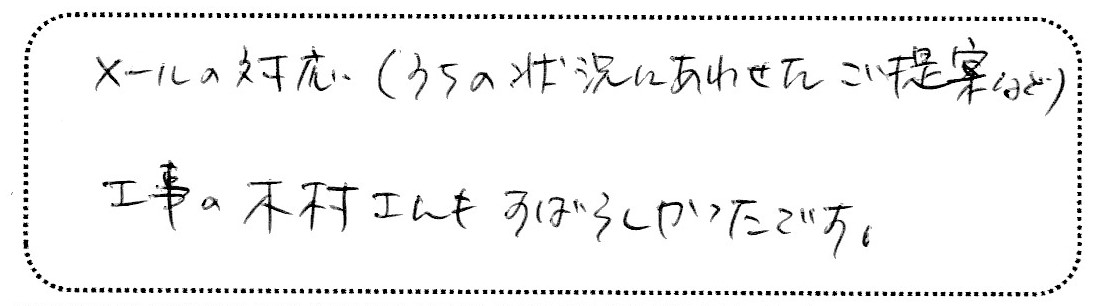 メールの対応(うちの状況にあわせたご提案など)
工事の木村さんもすばらしかったです。